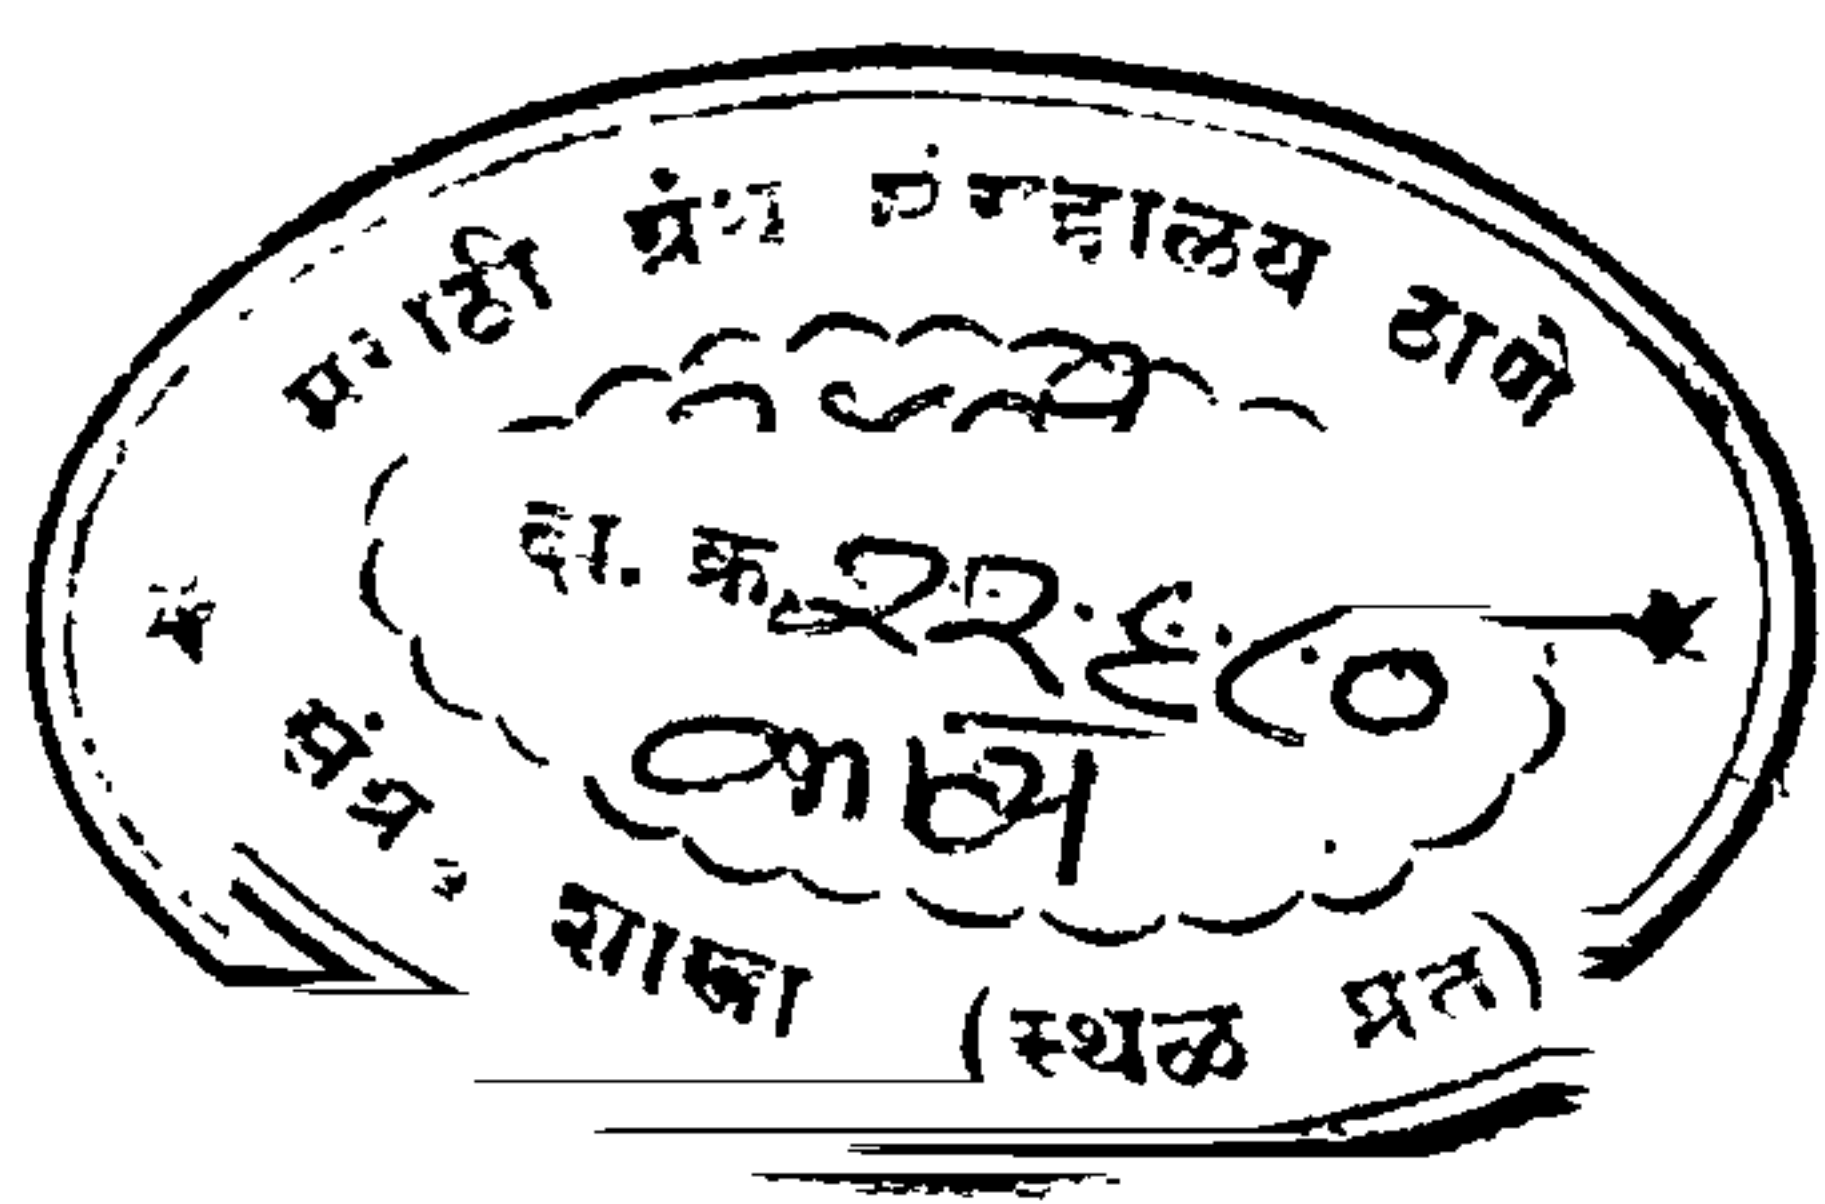 मराठी ग्रंथ संग्रहालय ठाणे
दा. क्र. २२६८०
काव्य
शाखा (स्थळ प्रत)